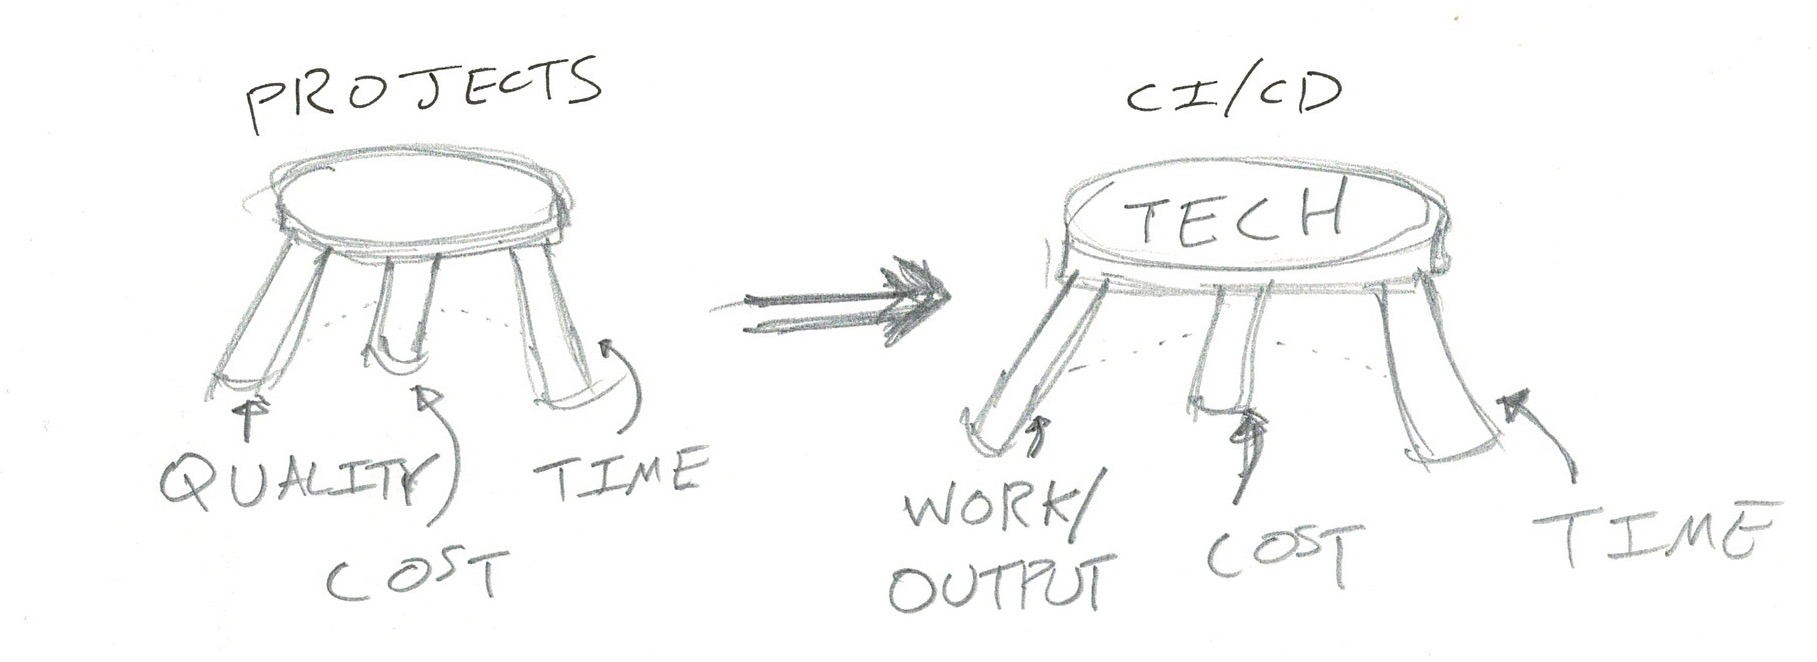 PROJECTS
QUALITY
COST
TIME
CI/CD
TECH
WORK/
OUTPUT
COST
TIME